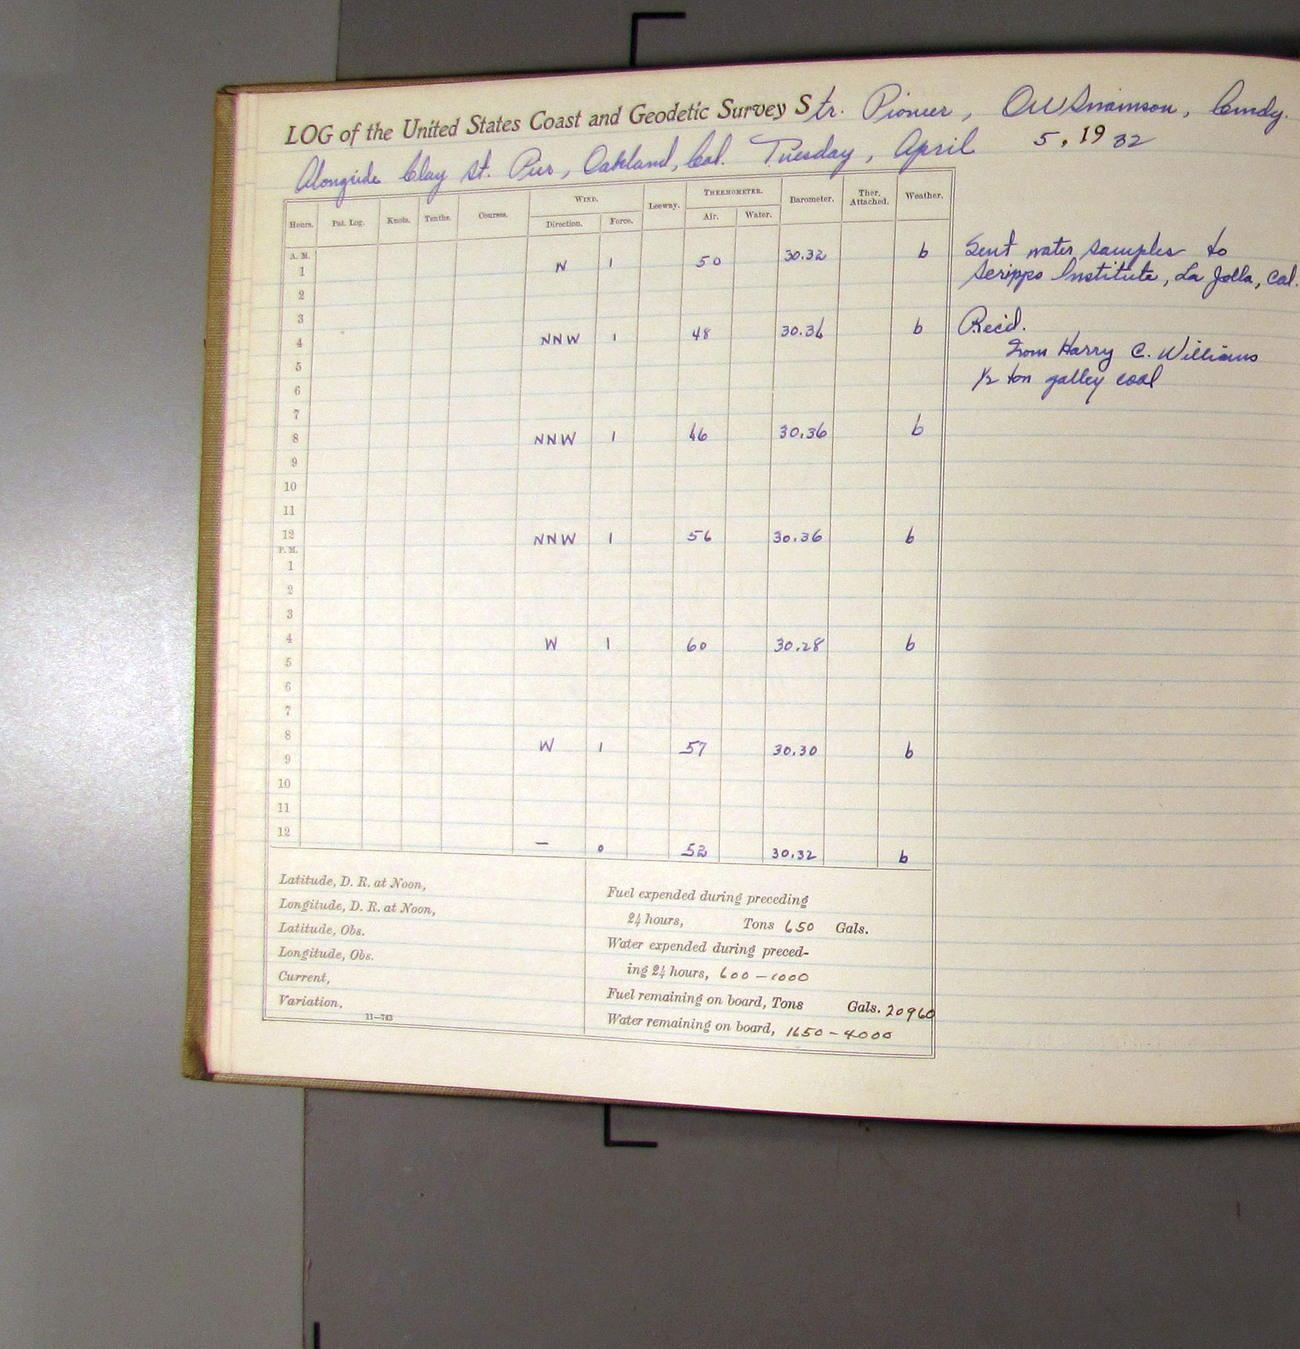 LOG of the United States Coast and Geodetic Survey Str. Pioneer, O W Swainson, Comdg.
Alongside Clay St. Pier, Oakland, Cal. Tuesday, April 5, 1932
Hours. Pat. Log. Knots. Tenths. Courses. WIND. Direction. Force. Leeway. THERMOMETER. Air. Water. Barometer. Ther. Attached. Weather.
A. M.
1 N 1 50 30.32 b
2
3
4 NNW 1 48 30.36 b
5
6
7
8 NNW 1 46 30.36 b
9
10
11
12 NNW 1 56 30.36 b
P. M.
1
2
3
4 W 1 60 30.28 b
5
6
7
8 W 1 57 30.30 b
9
10
11
12 — 0 52 30.32 b
Sent water samples to
Scripps Institute, La Jolla, Cal.
Rec'd.
From Harry C. Williams
½ ton galley coal
Latitude, D. R. at Noon,
Longitude, D. R. at Noon,
Latitude, Obs.
Longitude, Obs.
Current,
Variation,
11—743
Fuel expended during preceding
24 hours, Tons 650 Gals.
Water expended during preced-
ing 24 hours, 600 – 1000
Fuel remaining on board, Tons Gals. 20960
Water remaining on board, 1650 – 4000